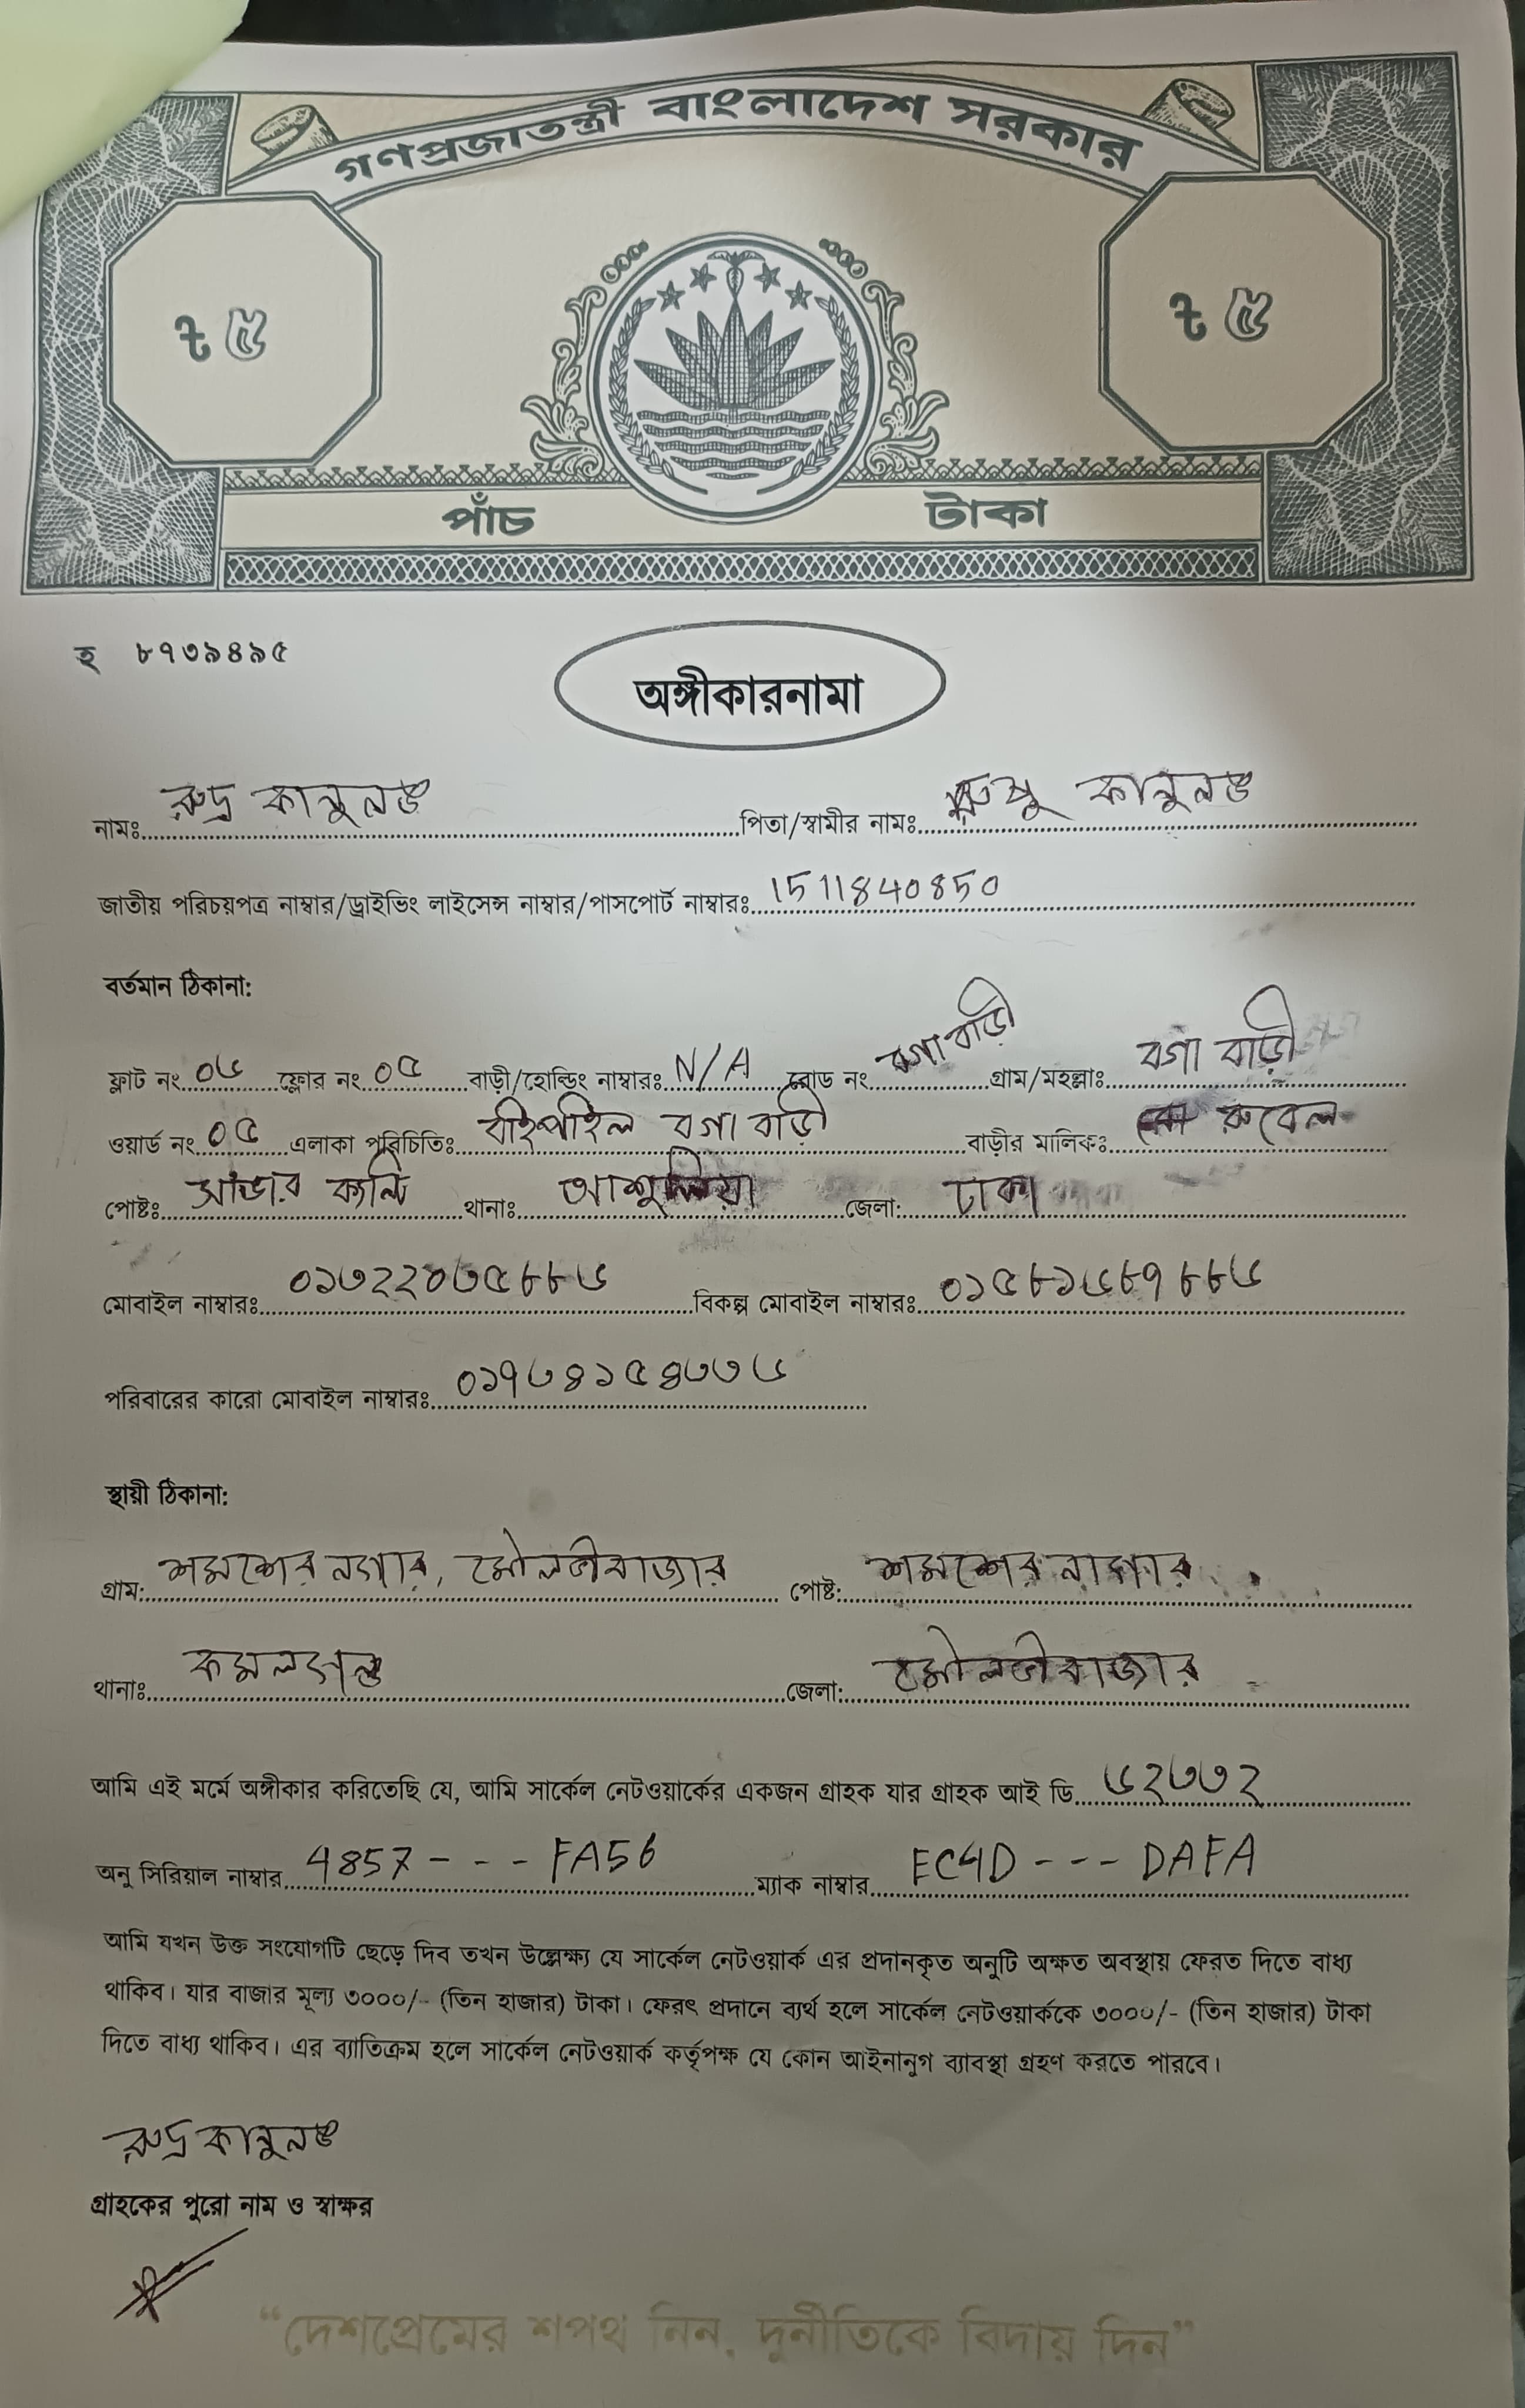 গণপ্রজাতন্ত্রী বাংলাদেশ সরকার
৳ ৫ ৳ ৫
পাঁচ টাকা
হ ৮৭৩৯৪৯৫
অঙ্গীকারনামা
নামঃ রুদ্র কানুনগু পিতা/স্বামীর নামঃ কানুনগু
জাতীয় পরিচয়পত্র নাম্বার/ড্রাইভিং লাইসেন্স নাম্বার/পাসপোর্ট নাম্বারঃ 1511840850
বর্তমান ঠিকানা:
ফ্লাট নং ০৬ ফ্লোর নং ০৫ বাড়ী/হোল্ডিং নাম্বারঃ N/A রোড নং বগাবাড়ী গ্রাম/মহল্লাঃ বগা বাড়ী
ওয়ার্ড নং ০৫ এলাকা পরিচিতিঃ বাইপাইল বগা বাড়ী বাড়ীর মালিকঃ রুবেল
পোষ্টঃ সাভার ক্যান্ট থানাঃ আশুলিয়া জেলা: ঢাকা
মোবাইল নাম্বারঃ বিকল্প মোবাইল নাম্বারঃ ০১৫৮১৬৮৭৮৮৬
পরিবারের কারো মোবাইল নাম্বারঃ ০১৭৩৪১৫৪৩৩৬
স্থায়ী ঠিকানা:
গ্রাম: শমশের নগার, মৌলভীবাজার পোষ্ট: শমশের নাগার
থানাঃ কমলগঞ্জ জেলা: মৌলভীবাজার
আমি এই মর্মে অঙ্গীকার করিতেছি যে, আমি সার্কেল নেটওয়ার্কের একজন গ্রাহক যার গ্রাহক আই ডি ৬২৩৩২
অনু সিরিয়াল নাম্বার 4857 - - - FA56 ম্যাক নাম্বার EC4D - - - DAFA
আমি যখন উক্ত সংযোগটি ছেড়ে দিব তখন উল্লেক্ষ্য যে সার্কেল নেটওয়ার্ক এর প্রদানকৃত অনুটি অক্ষত অবস্থায় ফেরত দিতে বাধ্য
থাকিব। যার বাজার মূল্য ৩০০০/- (তিন হাজার) টাকা। ফেরৎ প্রদানে ব্যর্থ হলে সার্কেল নেটওয়ার্ককে ৩০০০/- (তিন হাজার) টাকা
দিতে বাধ্য থাকিব। এর ব্যাতিক্রম হলে সার্কেল নেটওয়ার্ক কর্তৃপক্ষ যে কোন আইনানুগ ব্যাবস্থা গ্রহণ করতে পারবে।
রুদ্র কানুনগু
গ্রাহকের পুরো নাম ও স্বাক্ষর
“দেশপ্রেমের শপথ নিন, দুর্নীতিকে বিদায় দিন”